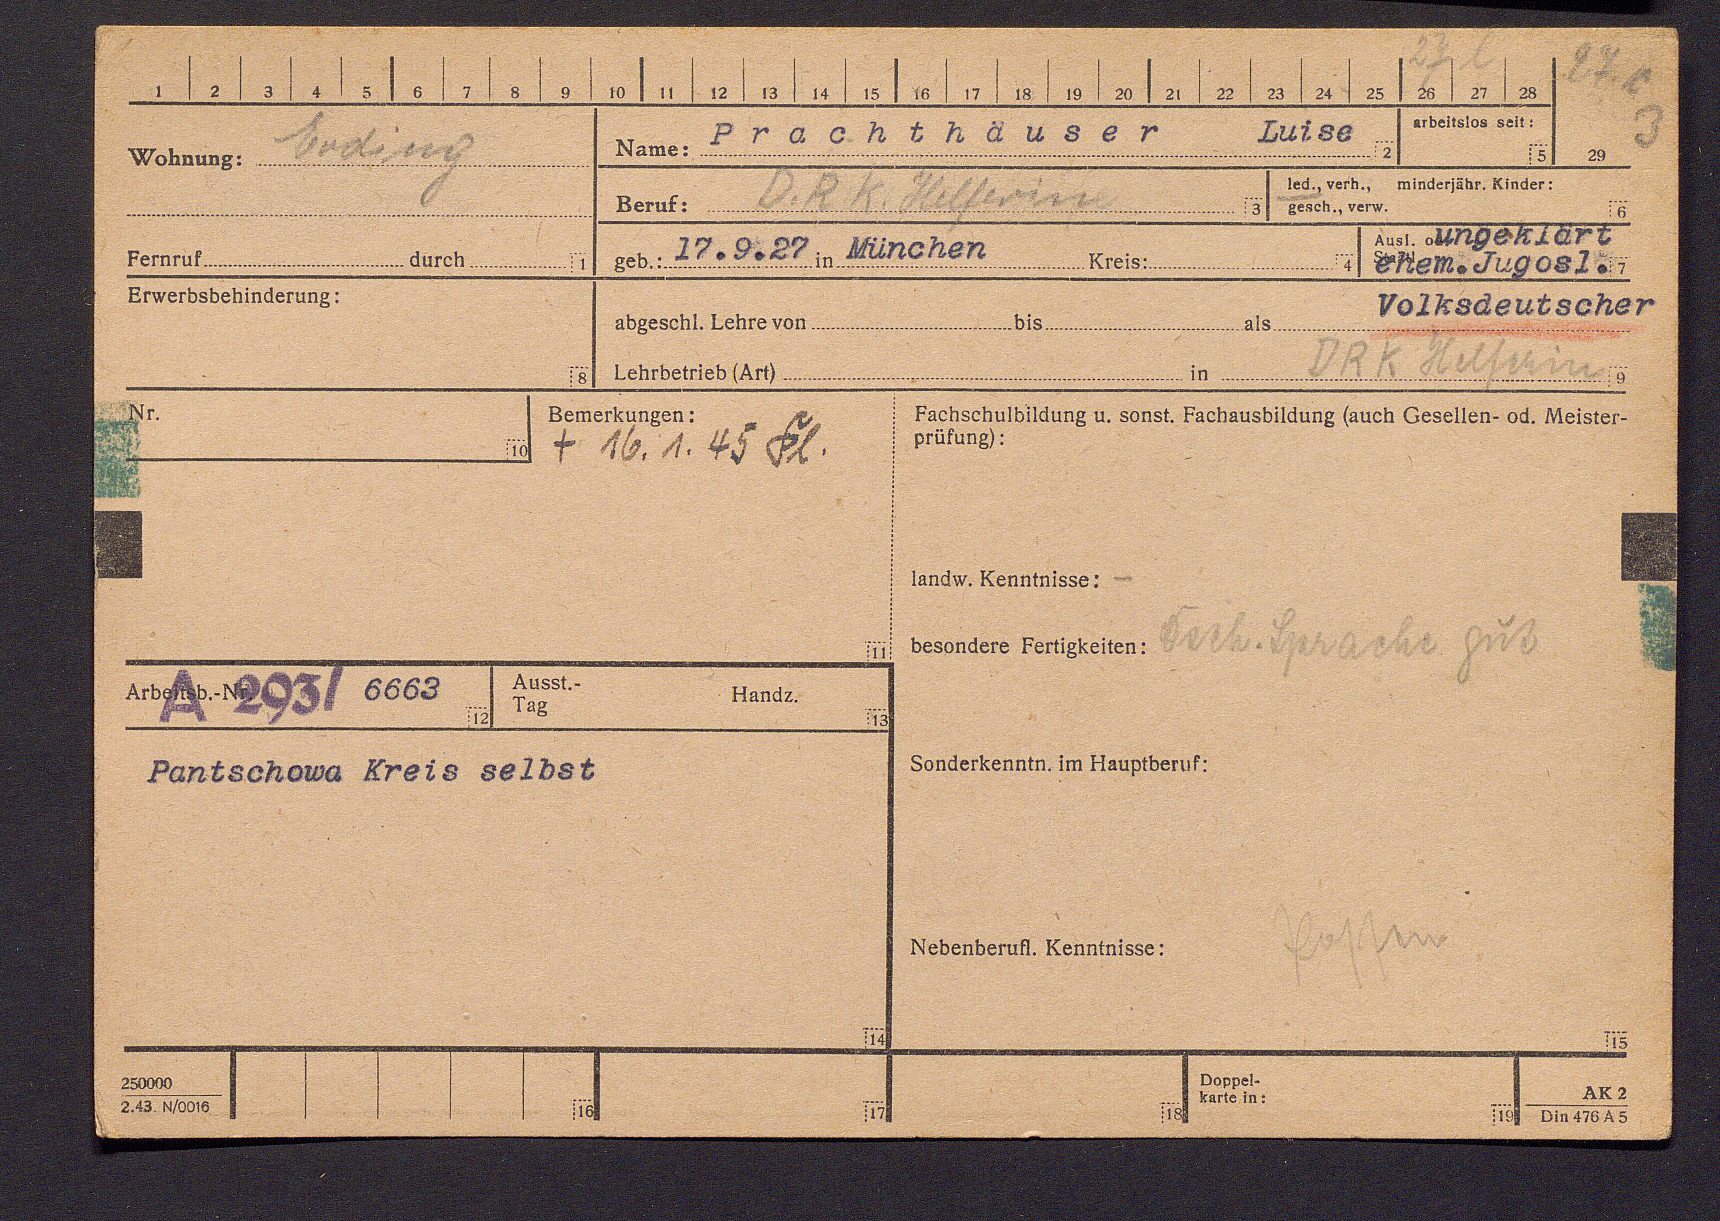 27
27.
3
1 2 3 4 5 6 7 8 9 10 11 12 13 14 15 16 17 18 19 20 21 22 23 24 25 26 27 28
29
Wohnung: Erding
Name: Prachthäuser Luise 2
arbeitslos seit: 5
Beruf: D.R.K. Helferin 3
led., verh., minderjähr. Kinder:
gesch., verw. 6
Fernruf durch 1
geb.: 17.9.27 in München Kreis: 4
Ausl. ungeklärt
ehem. Jugosl. 7
Volksdeutscher
Erwerbsbehinderung: 8
abgeschl. Lehre von bis als
Lehrbetrieb (Art) in DRK Helferin 9
Nr. 10
Bemerkungen:
+ 16. 1. 45
11
Fachschulbildung u. sonst. Fachausbildung (auch Gesellen- od. Meister-
prüfung):
landw. Kenntnisse: –
besondere Fertigkeiten: Sprache gut
Arbeitsb.-Nr. A 293/ 6663 12
Ausst.-
Tag Handz. 13
Pantschowa Kreis selbst
Sonderkenntn. im Hauptberuf:
Nebenberufl. Kenntnisse:
14
15
250000
2.43. N/0016
16
17
18
Doppel-
karte in: 19
AK 2
Din 476 A 5